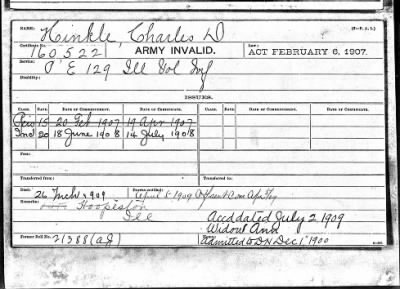 NAME: Hinkle, Charles D
Certificate No. 160,522
ARMY INVALID.
LAW: ACT FEBRUARY 6, 1907.
Service: P E 129 Ill Vol Inf
Disability:
ISSUES.
CLASS. RATE. DATE OF COMMENCEMENT. DATE OF CERTIFICATE. CLASS. RATE. DATE OF COMMENCEMENT. DATE OF CERTIFICATE.
15 20 Feb 1907 19 Apr 1907
Ind 20 18 June 1908 14 July 1908
Fee:
Transferred from: Transferred to:
Died: 26 Mch 1909 Bureau notified: April 8 1909
Remarks: Hoopeston
Ill
Accd dated July 2 1909
Widow Ann
Former Roll No. 21388 (aJ) Admitted to DN Dec 1" 1900